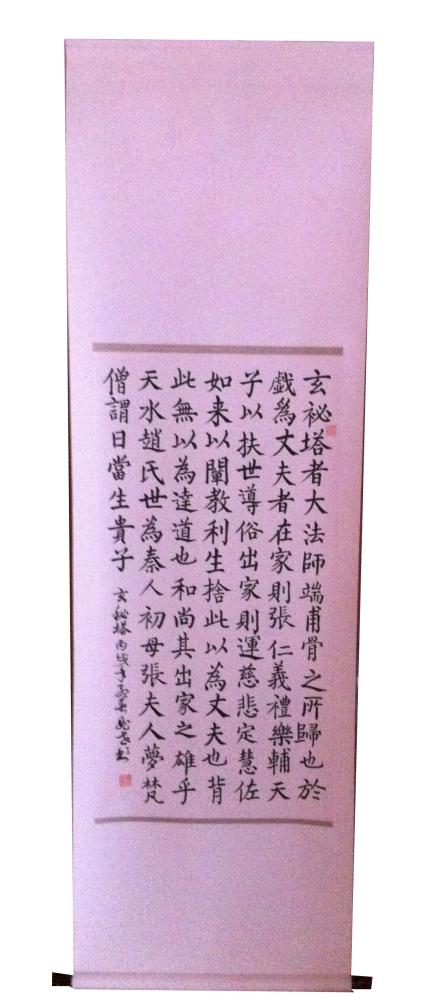 玄祕塔者大法師端甫骨之所歸也於
戲爲丈夫者在家則張仁義禮樂輔天
子以扶世導俗出家則運慈悲定慧佐
如来以闡教利生捨此以為丈夫也背
此無以為達道也和尚其出家之雄乎
天水趙氏世為秦人初母張夫人夢梵
僧謂曰當生貴子
玄秘塔丙戌年